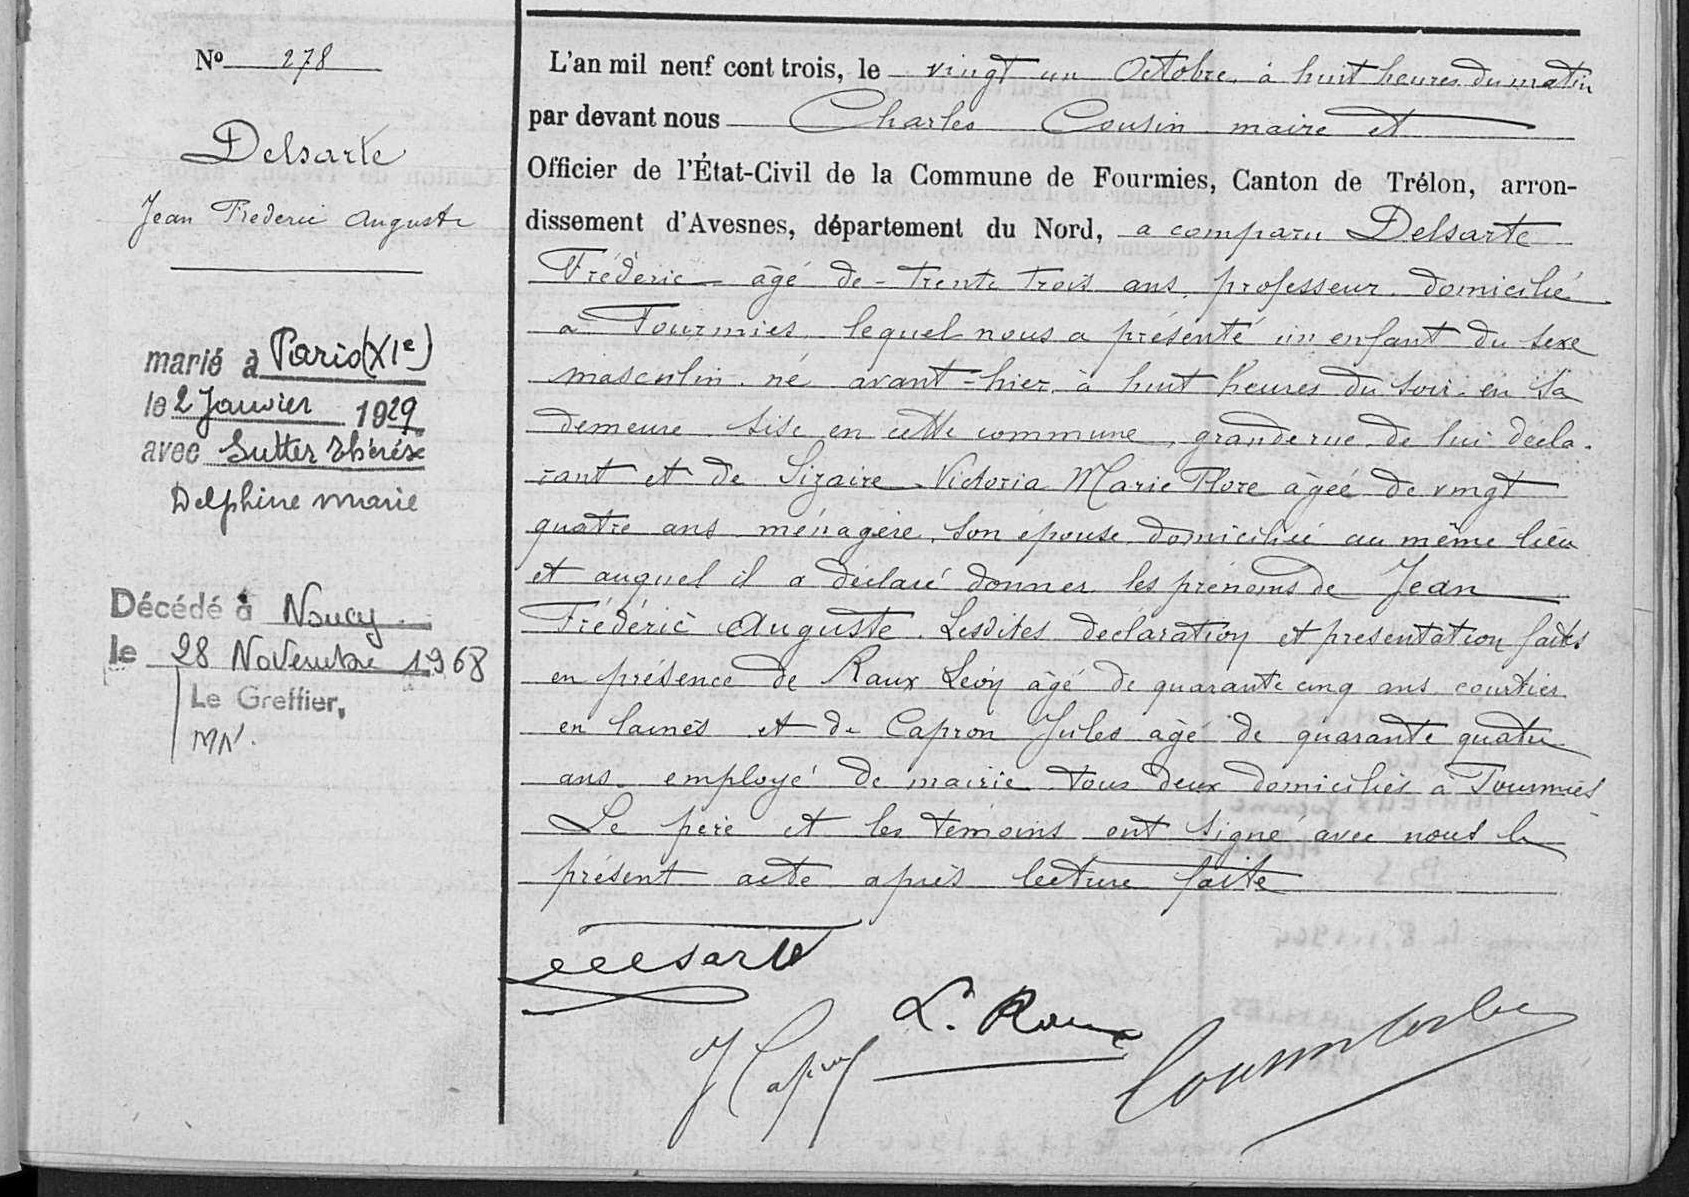 No 278
Delsarte
Jean Frederic Auguste
marié à Paris (XIe)
le 2 Janvier 1929
avec Sutter Thérèse
Delphine Marie
Décédé à Nancy
le 28 Novembre 1968
Le Greffier,
MN.
L'an mil neuf cent trois, le vingt un Octobre, à huit heures du matin
par devant nous Charles Cousin maire et
Officier de l'État-Civil de la Commune de Fourmies, Canton de Trélon, arron-
dissement d'Avesnes, département du Nord, a comparu Delsarte
Fréderic âgé de trente trois ans, professeur domicilié
à Fourmies lequel nous a présenté un enfant du sexe
masculin né avant-hier à huit heures du soir en sa
demeure sise en cette commune, grande rue de lui décla-
rant et de Sizaire Victoria Marie Flore âgée de vingt
quatre ans ménagère, son épouse domiciliée au même lieu
et auquel il a déclaré donner les prénoms de Jean
Frédéric Auguste. Lesdites déclaration et présentation faites
en présence de Raux Léon âgé de quarante cinq ans courtier
en laines et de Capron Jules âgé de quarante quatre
ans employé de mairie tous deux domiciliés à Fourmies
Le père et les témoins ont signé avec nous le
présent acte après lecture faite
Delsarte
L. Raux
J Capron
Cousin Charles